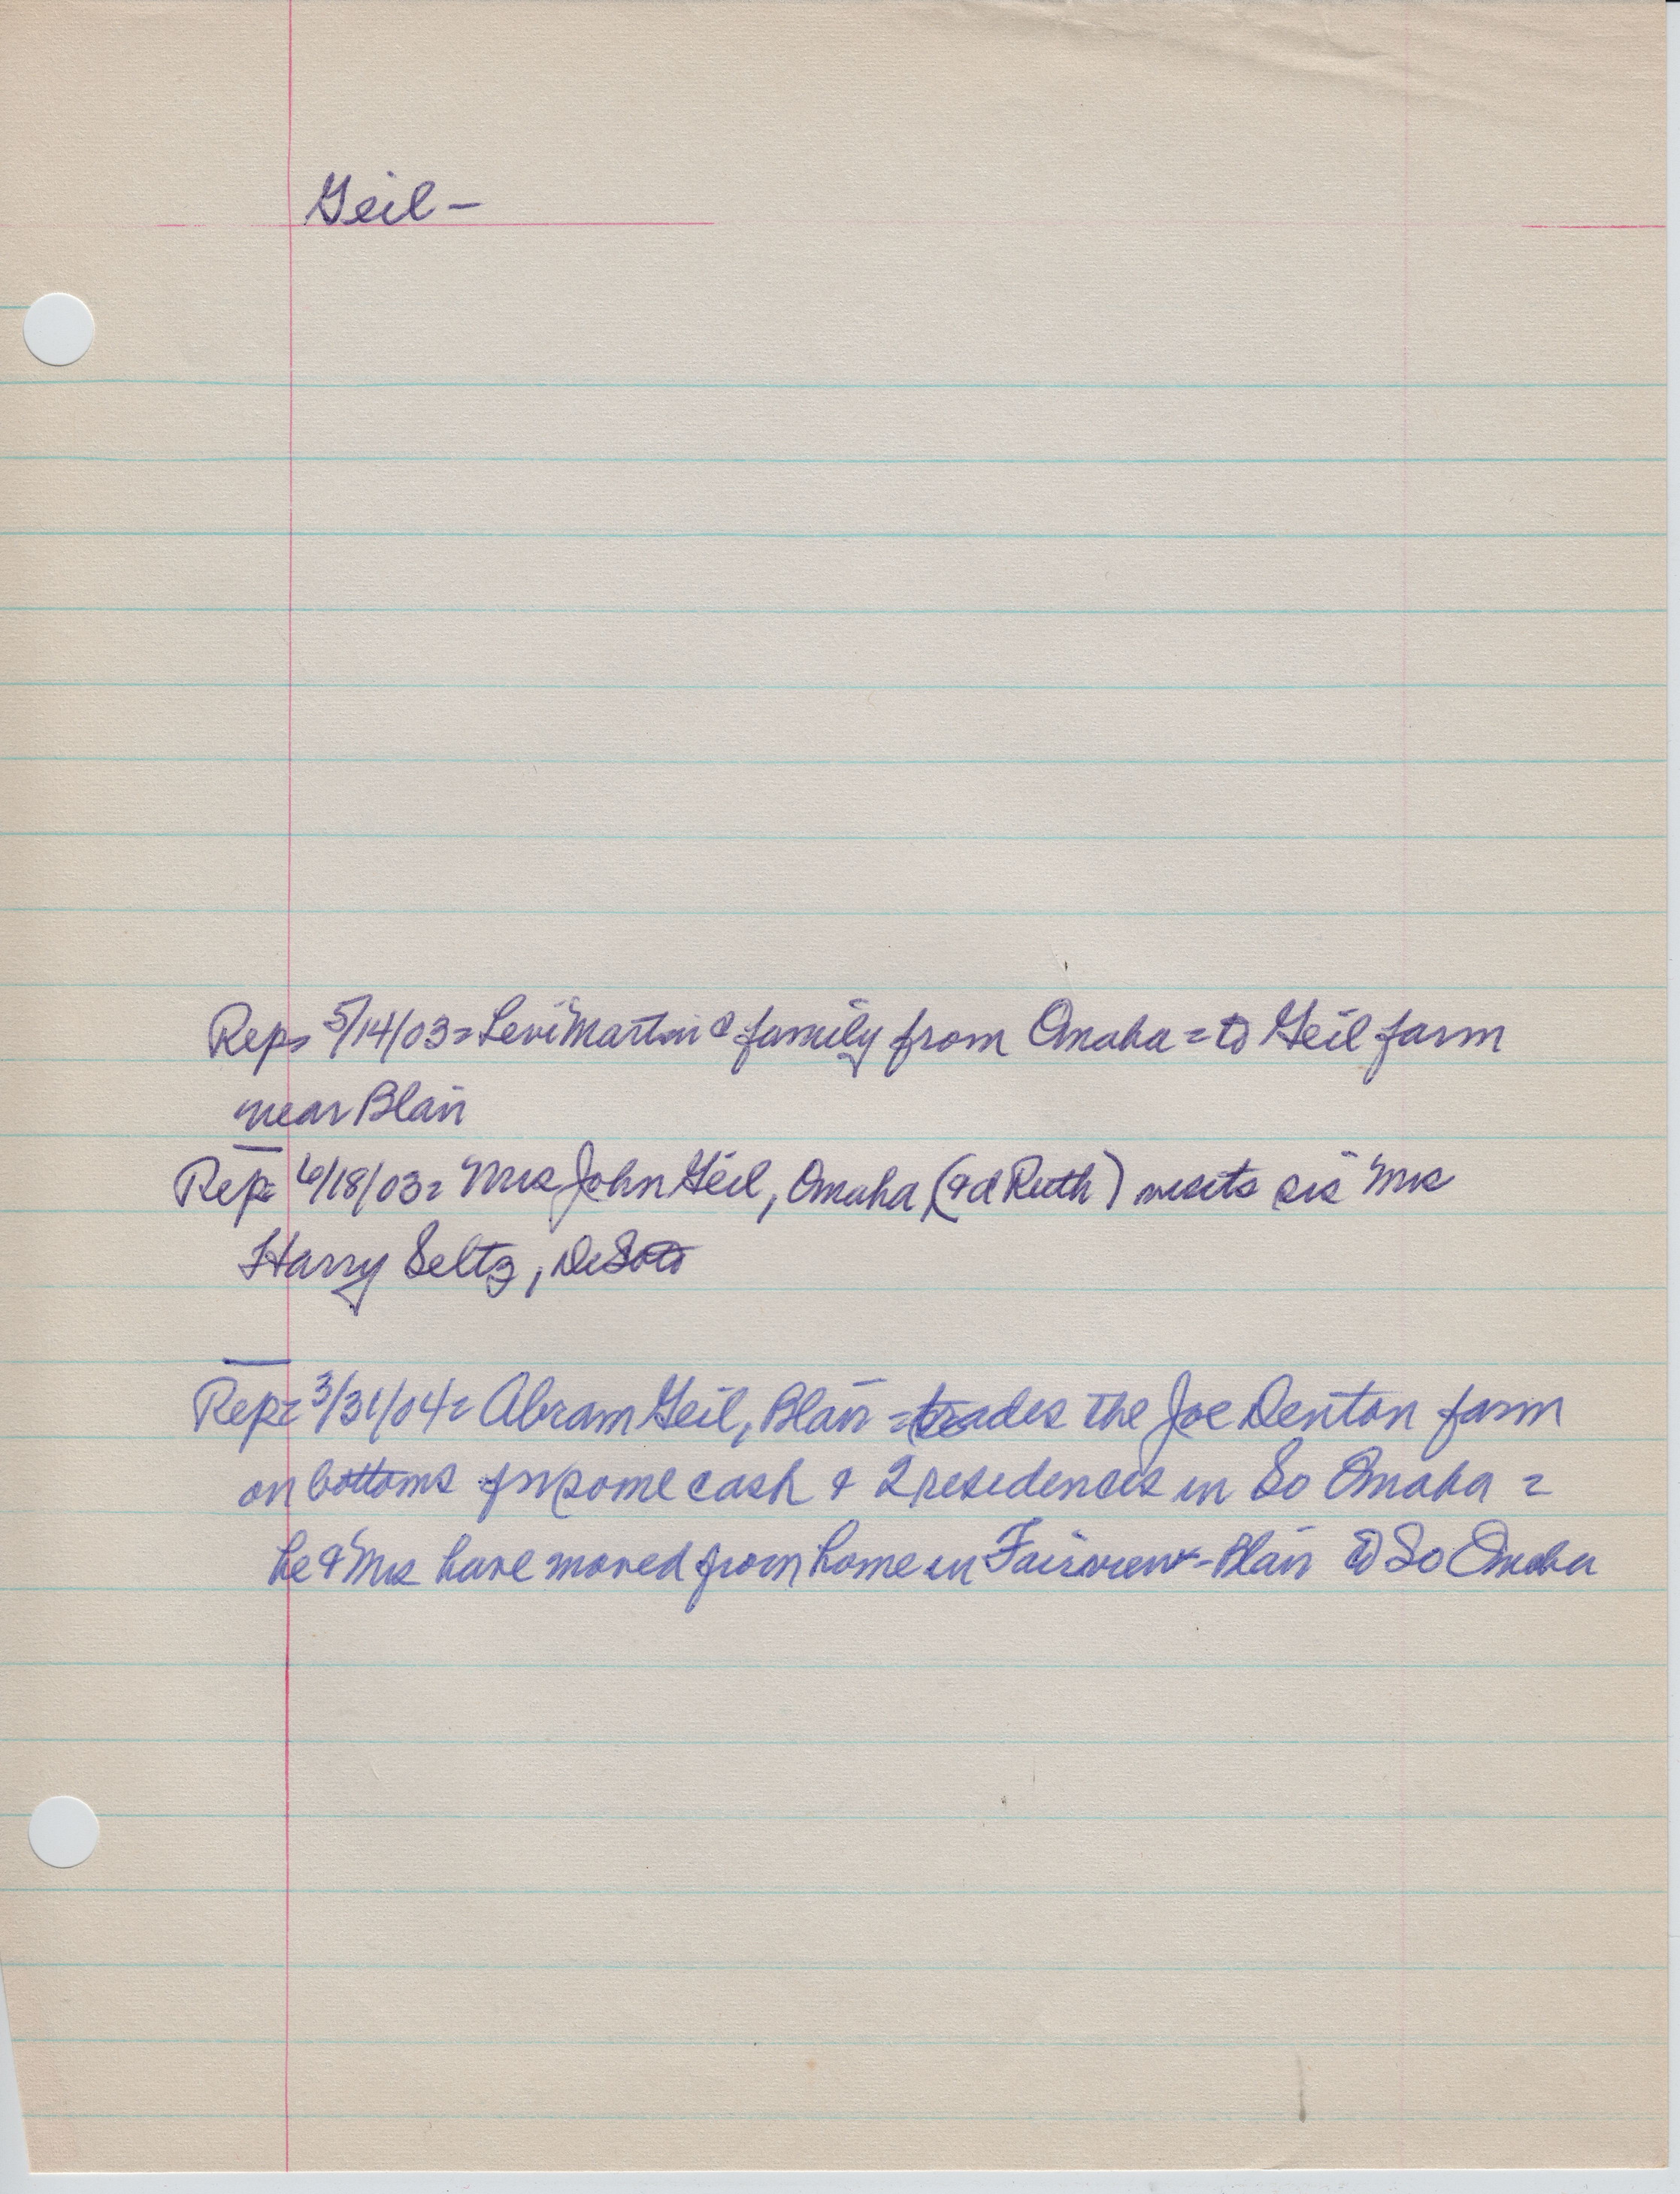 Geil -
Rep= 5/14/03= Levi Martin & family from Omaha = to Geil farm
near Blair
Rep= 6/18/03= Mrs John Geil, Omaha, (& d Ruth) visits sis Mrs
Harry Seltz, DeSoto
Rep= 3/31/04= Abram Geil, Blair = trades the Joe Denton farm
on bottoms for some cash & 2 residences in So Omaha =
he & Mrs have moved from home in Fairview - Blair to So Omaha